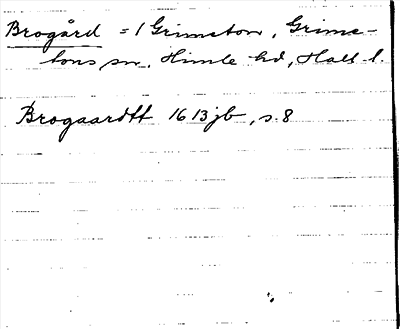 Brogård = 1 Grimeton, Grime-
tons sn, Himle hd, Hall. l.
Brogaardtt 1613 jb, s. 8